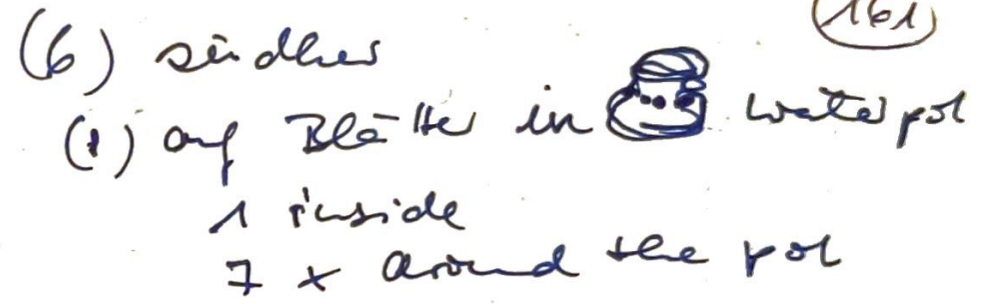 (161)
(6) sindher
(1) auf Blätter in waterpot
1 inside
7 x around the pot